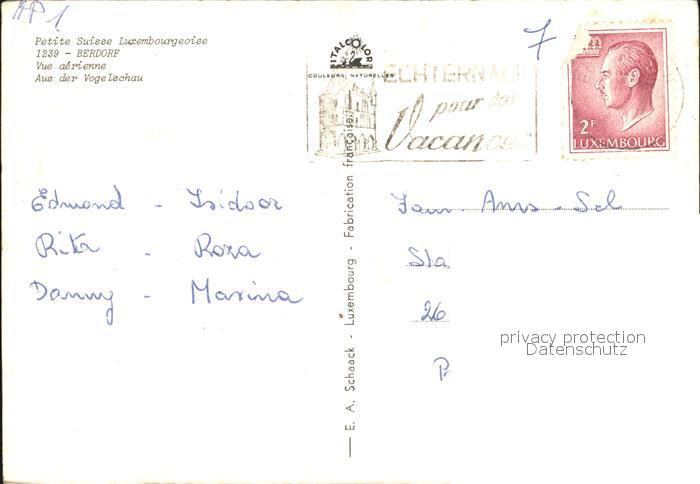 AP1
Petite Suisse Luxembourgeoise
1239 - BERDORF
Vue aérienne
Aus der Vogelschau
ITALCOLOR
COULEURS NATURELLES
ECHTERNAC
pour des
Vacances
7
2F
LUXEMBOURG
Edmond - Isidoor
Rita - Roza
Danny - Marina
E. A. Schaack - Luxembourg - Fabrication française
Fam. Ams - Sel
Sta
26
P.
privacy protection
Datenschutz